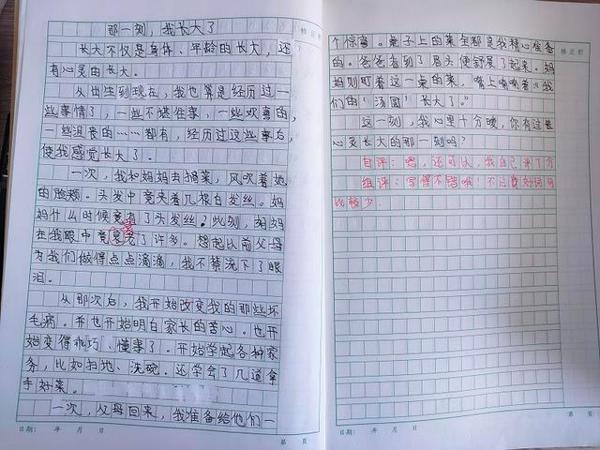 那一刻，我长大了
长大不仅是身体、年龄的长大，还
有心灵的长大。
从出生到现在，我也算是经历过一
些事情了，一些不堪往事，一些欢喜的，
一些沮丧的……都有，经历过这些事后，
使我感觉长大了。
一次，我和妈妈去摘菜，风吹着她
的脸颊。头发中竟夹着几根白发丝。妈
妈什么时候竟有了头发丝？此刻，妈妈
在我眼中竟老了许多。想起以前父母
为我们做得点点滴滴，我不禁流下了眼
泪。
从那次后，我开始改变我的那些坏
毛病。并也开始明白家长的苦心。也开
始变得乖巧、懂事了。开始学起各种家
务，比如扫地、洗碗。还学会了几道拿
手好菜。
一次，父母回来，我准备给他们一
日期： 年 月 日
第 页
个惊喜。桌子上的菜全都是我精心准备
的。爸爸看到了眉头便舒展了起来。妈
妈则盯着这一桌的菜，嘴上喃喃着“我
们的‘汤圆’长大了”
这一刻，我心里十分暖，你有过
心灵长大的那一刻吗？
自评：嗯，还可以，我自己
组评：写得不错哦！不过好词
比较少。
日期： 年 月 日
第 页